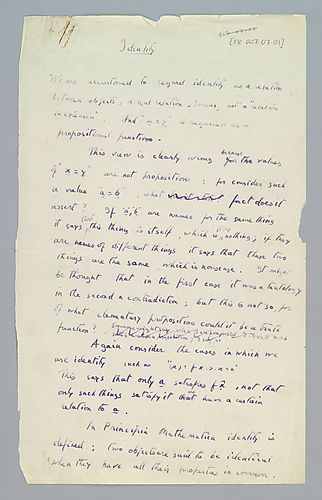 [FR.007-07-01]
Identity
We are accustomed to regard identity as a relation
between objects, a real relation, I mean, not a "relation
in extension". And "x = y" is regarded as a
propositional function.
This view is clearly wrong because the values
of "x = y" are not propositions: for consider such
a value a = b, what fact does it
assert? If 'a', 'b' are names for the same thing
it says that the thing is itself, which is nothing, if they
are names of different things it says that these two
things are the same, which is nonsense. It might
be thought that in the first case it was a tautology
in the second a contradiction; but this is not so, for
of what elementary propositions could it be a truth
function?
Again consider the cases in which we
use identity such as (x): fx . ⊃ . x = a
This says that only a satisfies fx̂, not that
only such things satisfy it that have a certain
relation to a.
In Principia Mathematica identity is
defined; two objects are said to be identical
when they have all their properties in common.